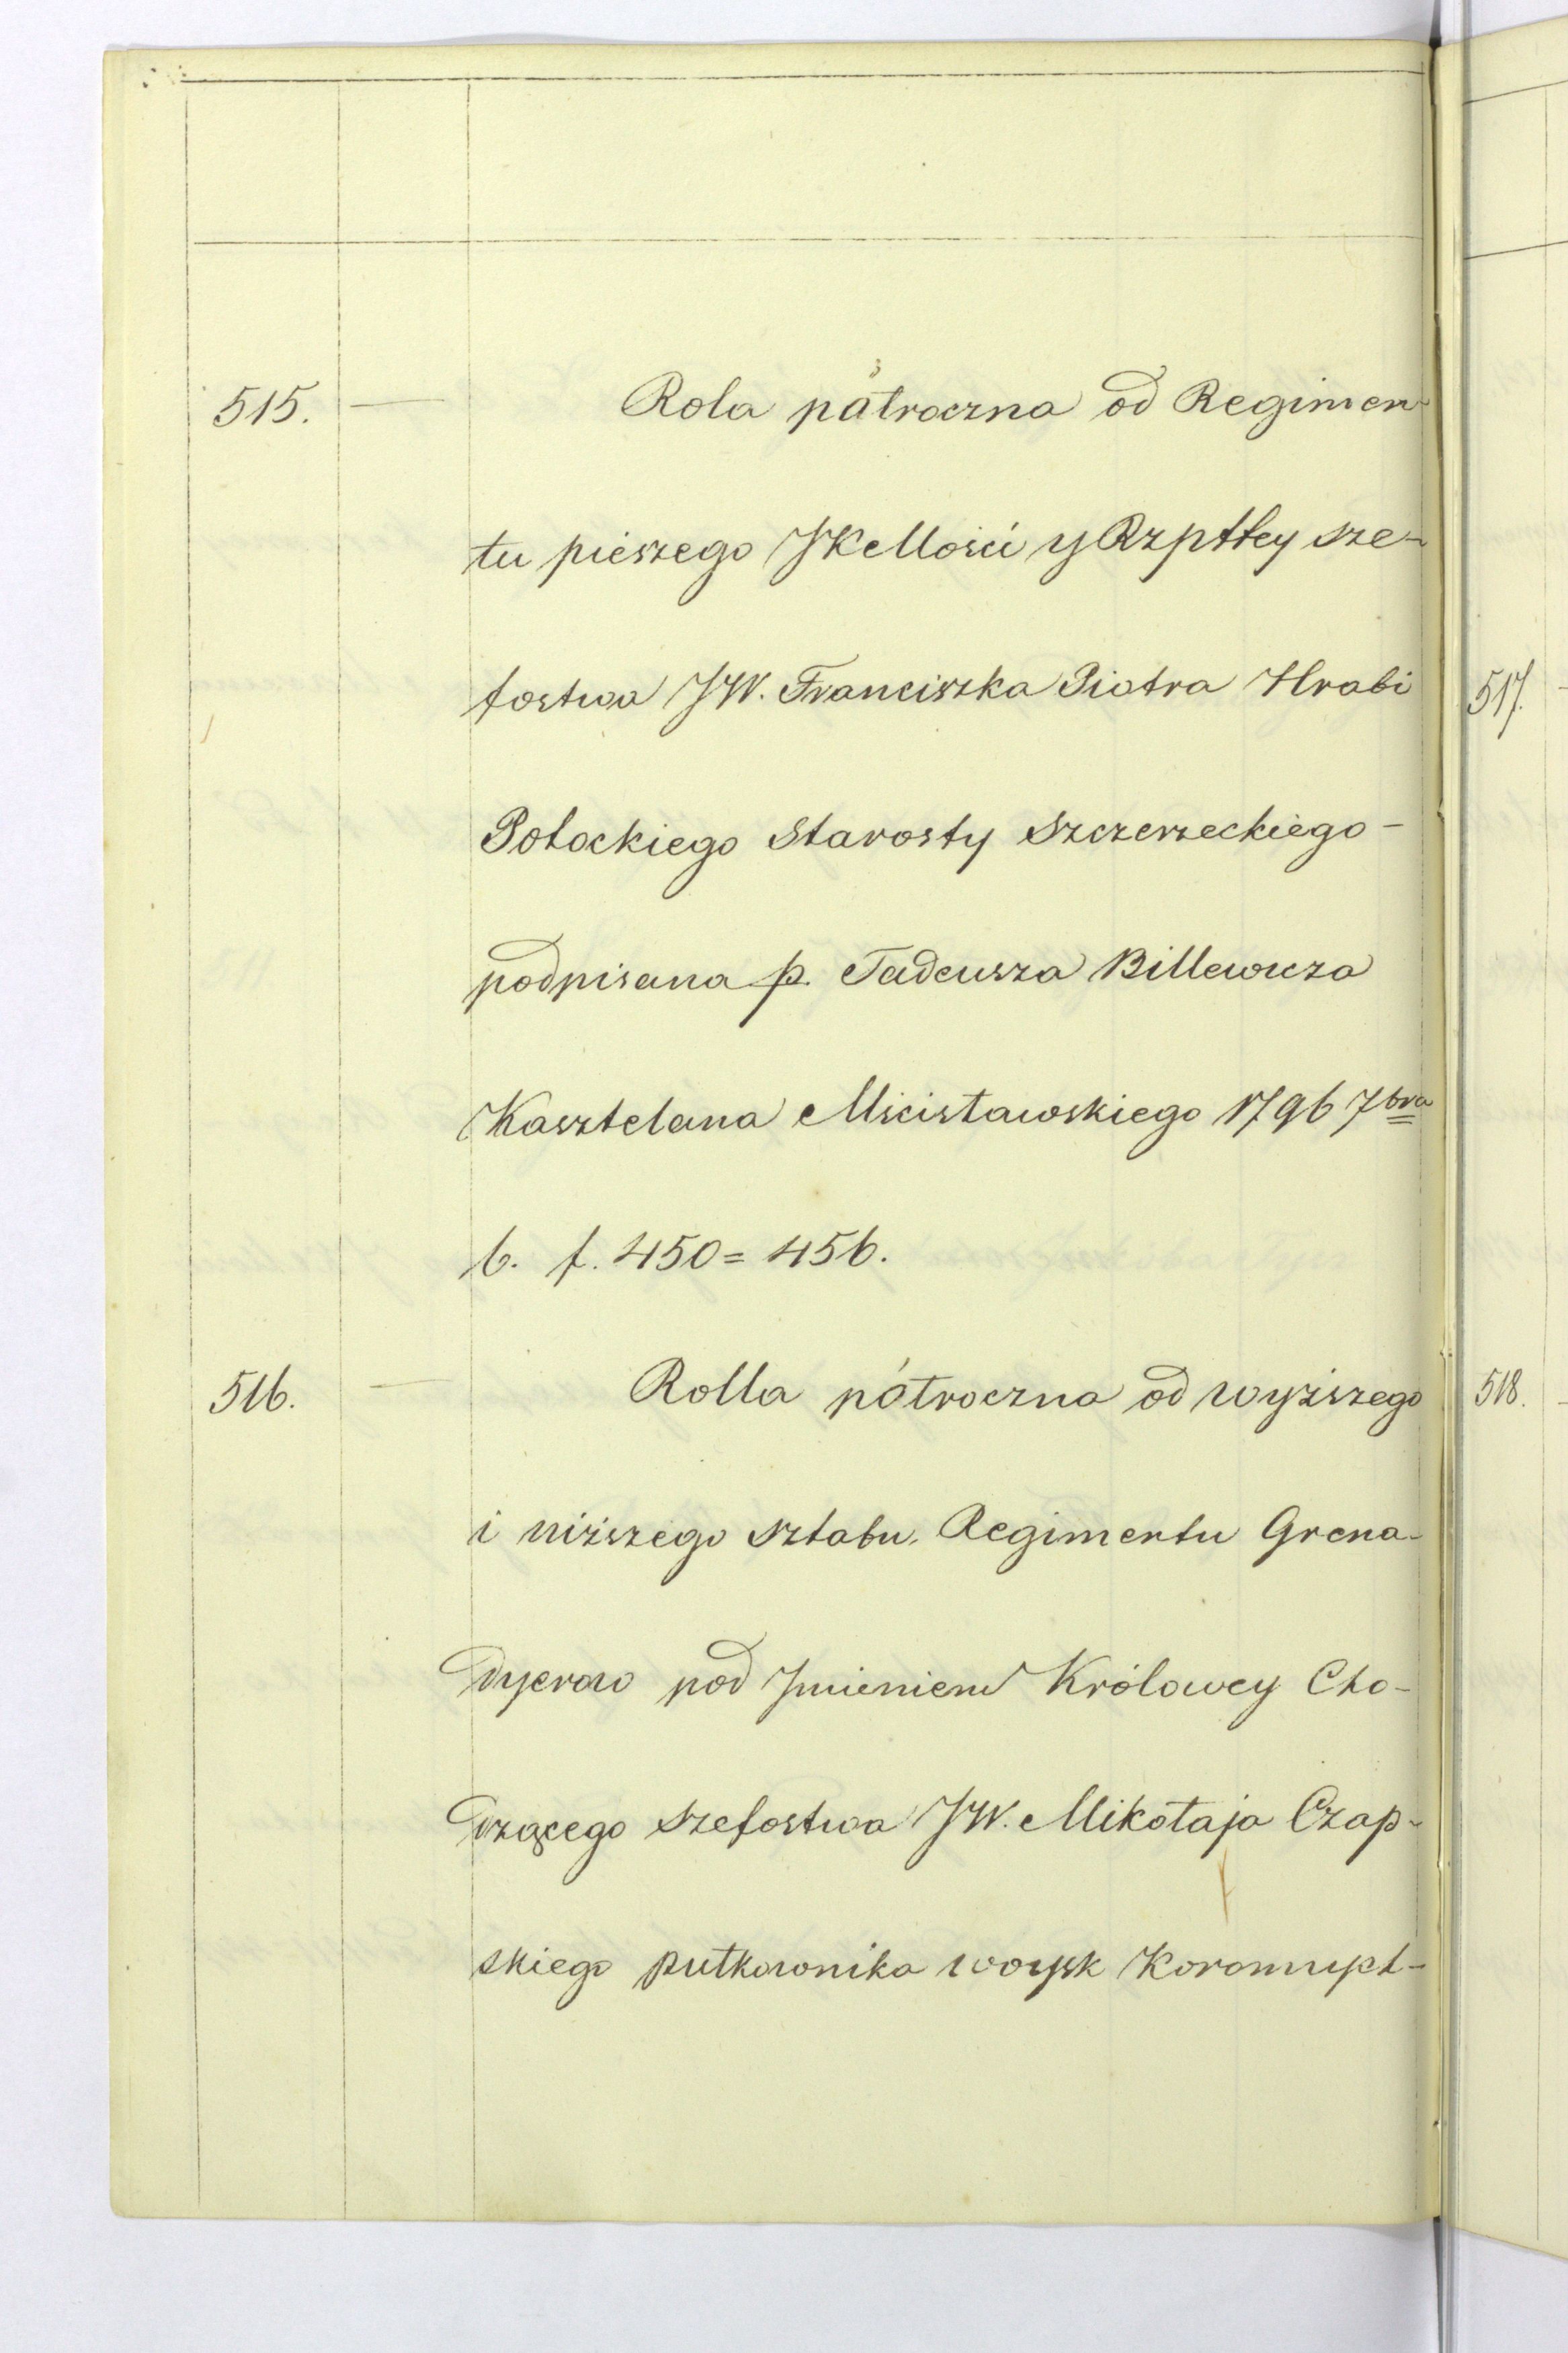 515. — Rola pólroczna od Regimen-
tu pieszego JKMości y Rzpttey sze-
fostwa JW. Franciszka Piotra Hrabi
Potockiego Starosty Szczerzeckiego -
podpisana p. Tadeusza Billewicza
Kasztelana Mścisławskiego 1796 7bra
6. f. 450 = 456.
516. — Rolla półroczna od wyższego
i niższego sztabu. Regimentu Grena-
dyerow pod Jmieniem Królowey Cho-
dzącego szefostwa JW. Mikołaja Czap-
skiego pułkownika woysk Koronnych -
517.
518.